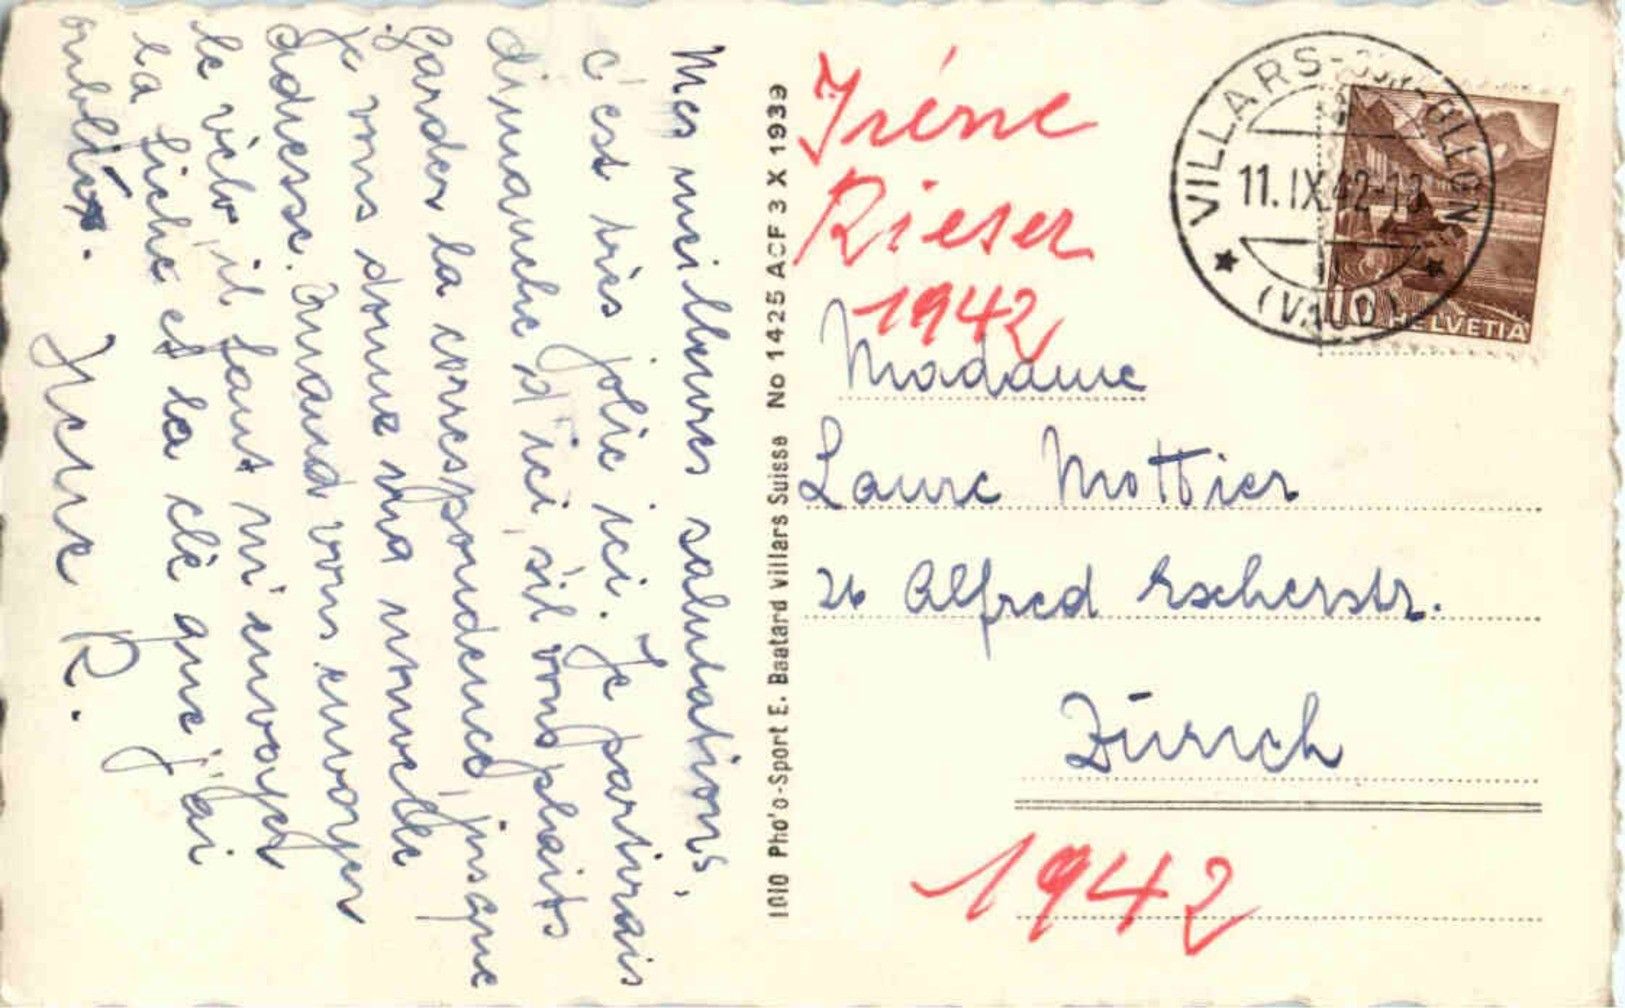 Mes meilleures salutations,
c'est très jolie ici. Je partirais
dimanche d'ici, s'il vous plaits
garder la correspondence, jusque
je vous donne ma nouvelle
adresse. Quand vous envoyer
le vèlo, il faut m'envoyer
la fiche et la clè que j'ai
oublié.
Irene R.
1010 Pho'o-Sport E. Baatard Villars Suisse No 1425 ACF 3 X 1939
Iréne
Rieser
1942
VILLARS-SUR-OLLON
11.IX.42-12
(VAUD)
10 HELVETIA
Madame
Laure Mottier
26 Alfred Escherstr.
Zürich
1942